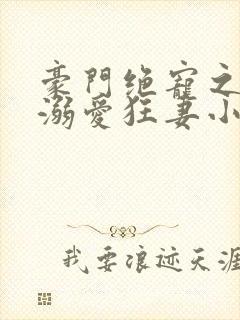 豪門绝寵之
溺愛狂妻小
我要浪迹天涯